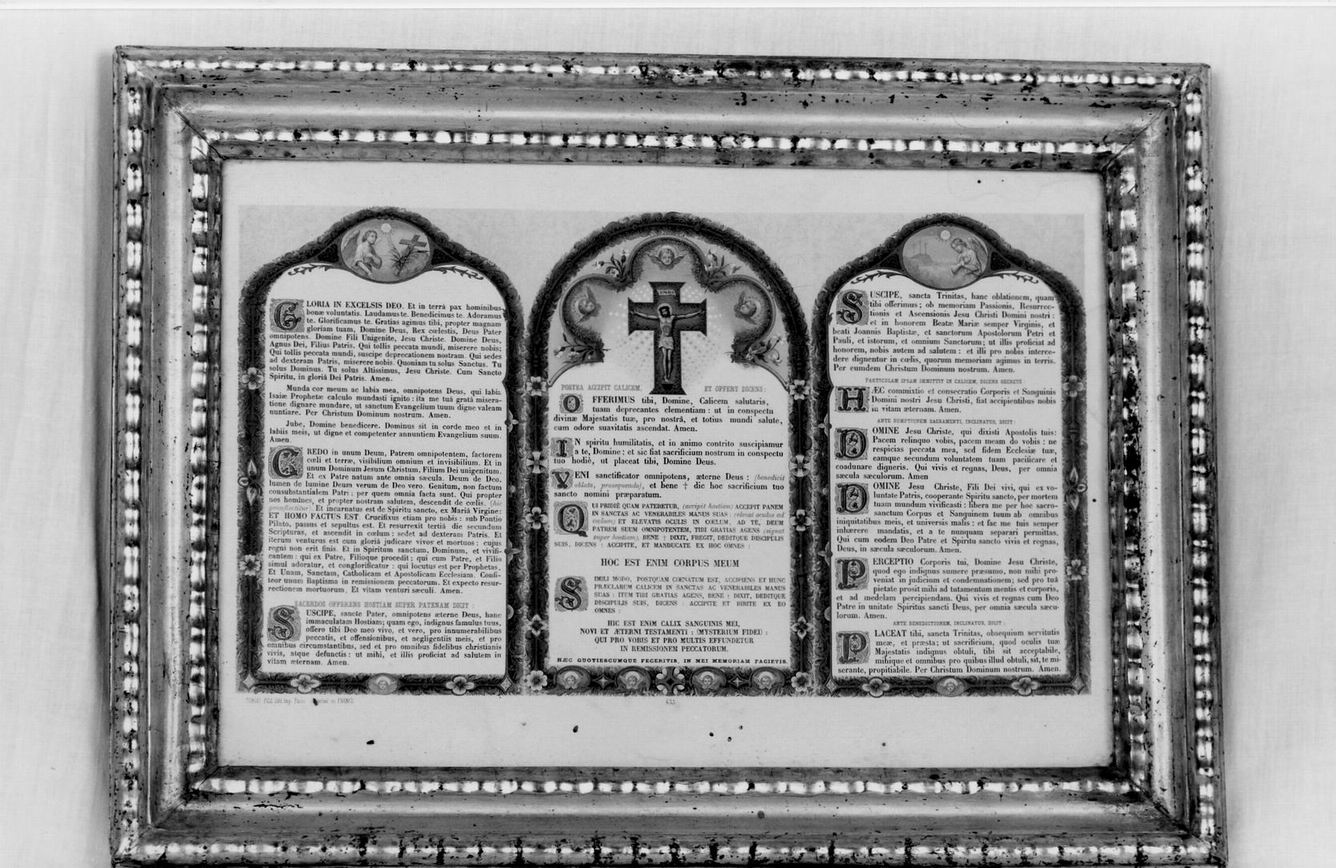 GLORIA IN EXCELSIS DEO. Et in terrâ pax hominibus
bonæ voluntatis. Laudamus te. Benedicimus te. Adoramus
te. Glorificamus te. Gratias agimus tibi, propter magnam
gloriam tuam, Domine Deus, Rex cœlestis, Deus Pater
omnipotens. Domine Fili Unigenite, Jesu Christe. Domine Deus,
Agnus Dei, Filius Patris. Qui tollis peccata mundi, miserere nobis;
Qui tollis peccata mundi, suscipe deprecationem nostram. Qui sedes
ad dexteram Patris, miserere nobis. Quoniam tu solus Sanctus. Tu
solus Dominus. Tu solus Altissimus, Jesu Christe. Cum Sancto
Spiritu, in gloriâ Dei Patris. Amen.
Munda cor meum ac labia mea, omnipotens Deus, qui labia
Isaiæ Prophetæ calculo mundasti ignito: ita me tuâ gratâ misera-
tione dignare mundare, ut sanctum Evangelium tuum digne valeam
nuntiare. Per Christum Dominum nostrum. Amen.
Jube, Domine benedicere. Dominus sit in corde meo et in
labiis meis, ut digne et competenter annuntiem Evangelium suum.
Amen.
CREDO in unum Deum, Patrem omnipotentem, factorem
cœli et terræ, visibilium omnium et invisibilium. Et in
unum Dominum Jesum Christum, Filium Dei unigenitum.
Et ex Patre natum ante omnia sæcula. Deum de Deo,
lumen de lumine Deum verum de Deo vero. Genitum, non factum
consubstantialem Patri: per quem omnia facta sunt. Qui propter
nos homines, et propter nostram salutem, descendit de cœlis. (hic
genuflectitur). Et incarnatus est de Spiritu sancto, ex Mariâ Virgine:
ET HOMO FACTUS EST. Crucifixus etiam pro nobis: sub Pontio
Pilato, passus et sepultus est. Et resurrexit tertiâ die secundum
Scripturas, et ascendit in cœlum: sedet ad dexteram Patris. Et
iterum venturus est cum gloriâ judicare vivos et mortuos: cujus
regni non erit finis. Et in Spiritum sanctum, Dominum, et vivifi-
cantem: qui ex Patre, Filioque procedit; qui cum Patre, et Filio
simul adoratur, et conglorificatur: qui locutus est per Prophetas.
Et Unam, Sanctam, Catholicam et Apostolicam Ecclesiam. Confi-
teor unum Baptisma in remissionem peccatorum. Et expecto resur-
rectionem mortuorum. Et vitam venturi sæculi. Amen.
SACERDOS OFFERENS HOSTIAM SUPER PATENAM DICIT:
SUSCIPE, sancte Pater, omnipotens æterne Deus, hanc
immaculatam Hostiam; quam ego, indignus famulus tuus,
offero tibi Deo meo vivo, et vero, pro innumerabilibus
peccatis, et offensionibus, et negligentiis meis, et pro
omnibus circumstantibus, sed et pro omnibus fidelibus christianis
vivis, atque defunctis: ut mihi, et illis proficiat ad salutem in
vitam æternam. Amen.
POSTEA ACCIPIT CALICEM, ET OFFERT DICENS:
OFFERIMUS tibi, Domine, Calicem salutaris,
tuam deprecantes clementiam: ut in conspectu
divinæ Majestatis tuæ, pro nostrâ, et totius mundi salute,
cum odore suavitatis ascendat. Amen.
IN spiritu humilitatis, et in animo contrito suscipiamur
a te, Domine: et sic fiat sacrificium nostrum in conspectu
tuo hodiè, ut placeat tibi, Domine Deus.
VENI sanctificator omnipotens, æterne Deus: (benedicit
oblata, prosequendo), et bene † dic hoc sacrificium tuo
sancto nomini præparatum.
QUI PRIDIE QUAM PATERETUR, (accipit hostiam) ACCEPIT PANEM
IN SANCTAS AC VENERABILES MANUS SUAS (elevat oculos ad
cœlum) ET ELEVATIS OCULIS IN CŒLUM, AD TE, DEUM
PATREM SUUM OMNIPOTENTEM, TIBI GRATIAS AGENS (signat
super hostiam), BENE † DIXIT, FREGIT, DEDITQUE DISCIPULIS
SUIS, DICENS: ACCIPITE, ET MANDUCATE EX HOC OMNES:
HOC EST ENIM CORPUS MEUM
SIMILI MODO, POSTQUAM CŒNATUM EST, ACCIPIENS ET HUNC
PRÆCLARUM CALICEM IN SANCTAS AC VENERABILES MANUS
SUAS: ITEM TIBI GRATIAS AGENS, BENE † DIXIT, DEDITQUE
DISCIPULIS SUIS, DICENS: ACCIPITE ET BIBITE EX EO
OMNES:
HIC EST ENIM CALIX SANGUINIS MEI,
NOVI ET ÆTERNI TESTAMENTI: MYSTERIUM FIDEI:
QUI PRO VOBIS ET PRO MULTIS EFFUNDETUR
IN REMISSIONEM PECCATORUM.
HÆC QUOTIESCUMQUE FECERITIS, IN MEI MEMORIAM FACIETIS.
SUSCIPE, sancta Trinitas, hanc oblationem, quam
tibi offerimus; ob memoriam Passionis, Resurrec-
tionis et Ascensionis Jesu Christi Domini nostri:
et in honorem Beatæ Mariæ semper Virginis, et
beati Joannis Baptistæ, et sanctorum Apostolorum Petri et
Pauli, et istorum, et omnium Sanctorum; ut illis proficiat ad
honorem, nobis autem ad salutem: et illi pro nobis interce-
dere dignentur in cœlis, quorum memoriam agimus in terris.
Per eumdem Christum Dominum nostrum. Amen.
PARTICULAM IPSAM IMMITTIT IN CALICEM, DICENS SECRETE
HÆC commixtio et consecratio Corporis et Sanguinis
Domini nostri Jesu Christi, fiat accipientibus nobis
in vitam æternam. Amen.
ANTE SUMPTIONEM SACRAMENTI, INCLINATUR, DICIT:
DOMINE Jesu Christe, qui dixisti Apostolis tuis:
Pacem relinquo vobis, pacem meam do vobis: ne
respicias peccata mea, sed fidem Ecclesiæ tuæ,
eamque secundum voluntatem tuam pacificare et
coadunare digneris. Qui vivis et regnas, Deus, per omnia
sæcula sæculorum. Amen.
DOMINE Jesu Christe, Fili Dei vivi, qui ex vo-
luntate Patris, cooperante Spiritu sancto, per mortem
tuam mundum vivificasti: libera me per hoc sacro-
sanctum Corpus et Sanguinem tuum ab omnibus
iniquitatibus meis, et universis malis: et fac me tuis semper
inhærere mandatis, et a te nunquam separari permittas.
Qui cum eodem Deo Patre et Spiritu sancto vivis et regnas,
Deus, in sæcula sæculorum. Amen.
PERCEPTIO Corporis tui, Domine Jesu Christe,
quod ego indignus sumere præsumo, non mihi pro-
veniat in judicium et condemnationem; sed pro tuâ
pietate prosit mihi ad tutamentum mentis et corporis,
et ad medelam percipiendam. Qui vivis et regnas cum Deo
Patre in unitate Spiritus sancti Deus, per omnia sæcula sæcu-
lorum. Amen.
ANTE BENEDICTIONEM, INCLINATUR, DICIT:
PLACEAT tibi, sancta Trinitas, obsequium servitutis
meæ, et præsta; ut sacrificium, quod oculis tuæ
Majestatis indignus obtuli, tibi sit acceptabile,
mihique et omnibus pro quibus illud obtuli, sit, te mi-
serante, propitiabile. Per Christum Dominum nostrum. Amen.
433